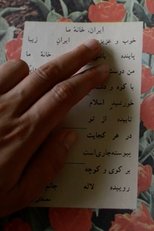 ایران، خانهٔ ما
خوب و عزیز ایران زیبا
پاینده خانهٔ ما
من دوست
با کوه و
خورشید اسلام
تابیده از تو
در هر کجایت
پیوسته جاری است
بر کوی و کوچه
روییده لاله